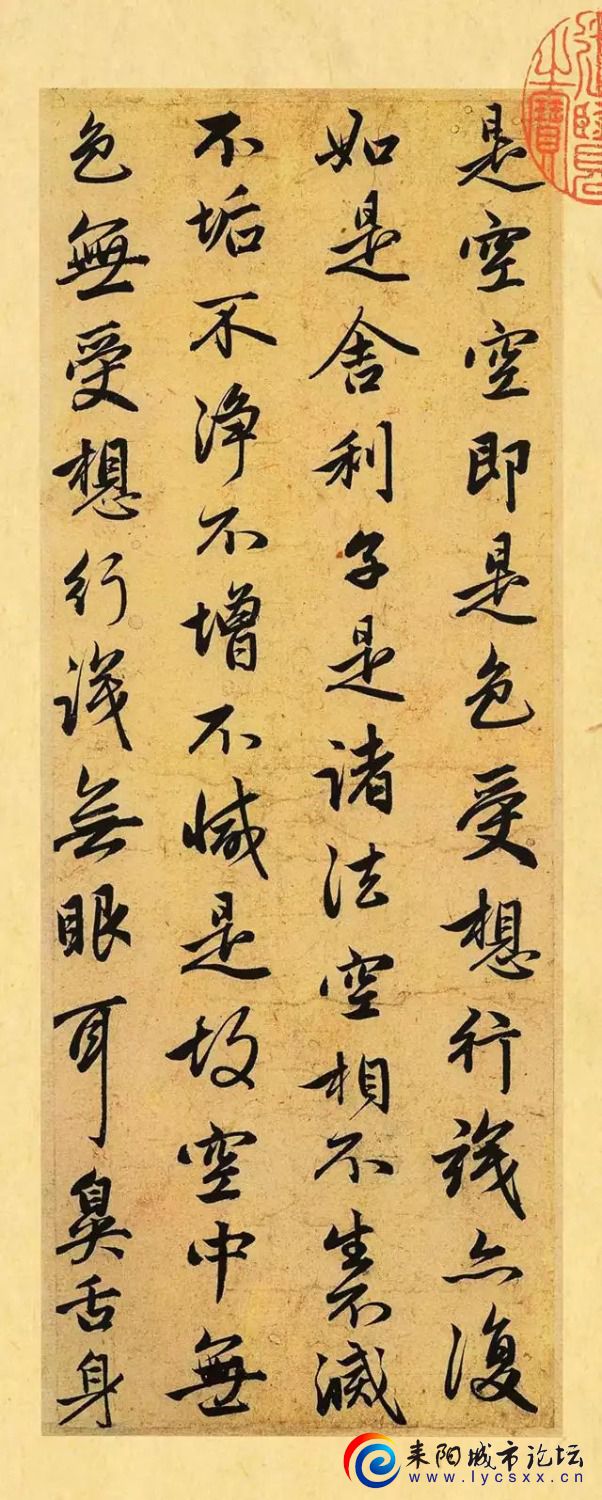 是空空即是色受想行識亦復
如是舍利子是諸法空相不生不滅
不垢不淨不增不減是故空中無
色無受想行識無眼耳鼻舌身
之寶
耒阳城市论坛
www.lycsxx.cn